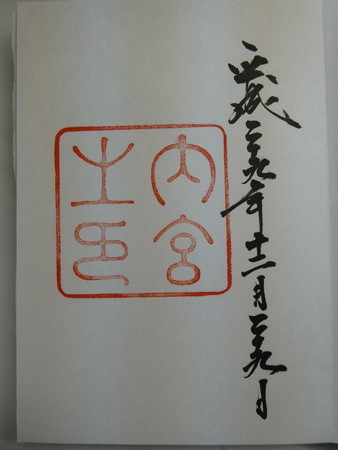 平成二十九年十二月二十九日
内宮
之印